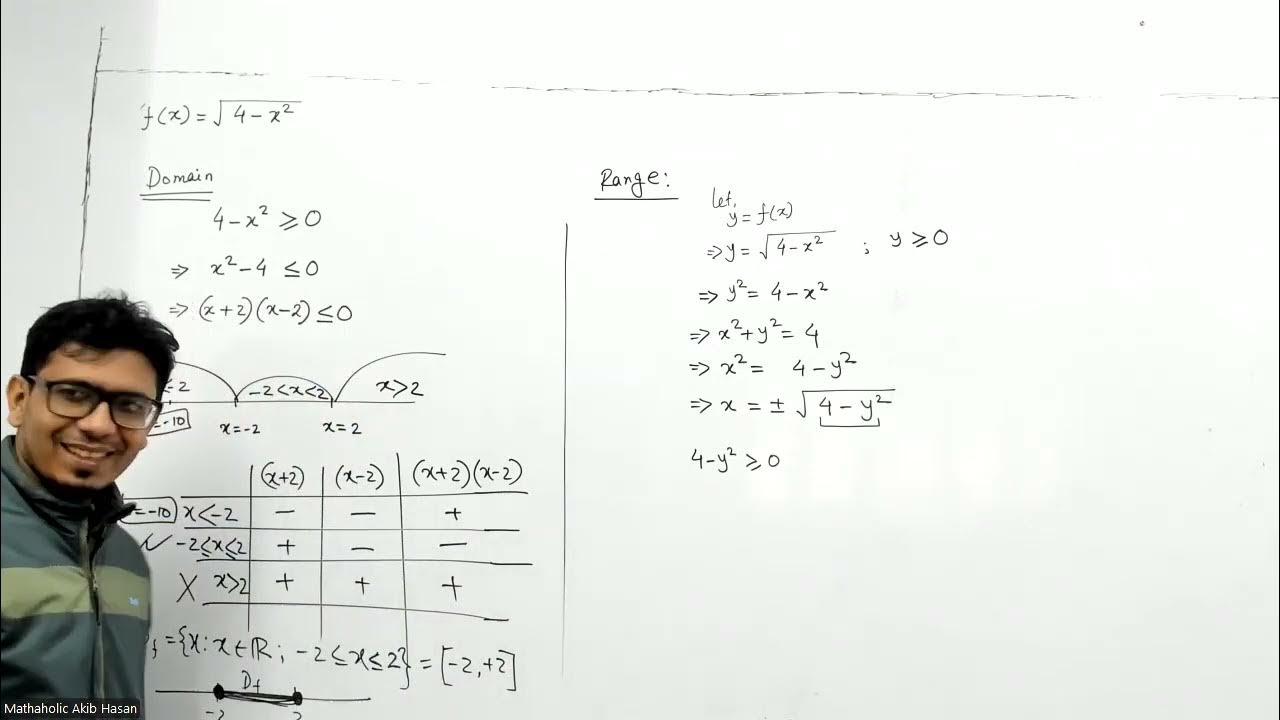 f(x) = √4 - x²
Domain
4 - x² ≥ 0
⇒ x² - 4 ≤ 0
⇒ (x+2)(x-2) ≤ 0
-2 < x < 2 x > 2
x = -2 x = 2
(x+2) (x-2) (x+2)(x-2)
= -10 x < -2 - - +
✓ -2 ≤ x ≤ 2 + - -
X x > 2 + + +
f = {x : x ∈ ℝ ; -2 ≤ x ≤ 2} = [-2, +2]
Df
-2 2
Range:
let,
y = f(x)
⇒ y = √4 - x² ; y ≥ 0
⇒ y² = 4 - x²
⇒ x² + y² = 4
⇒ x² = 4 - y²
⇒ x = ± √4 - y²
4 - y² ≥ 0
Mathaholic Akib Hasan